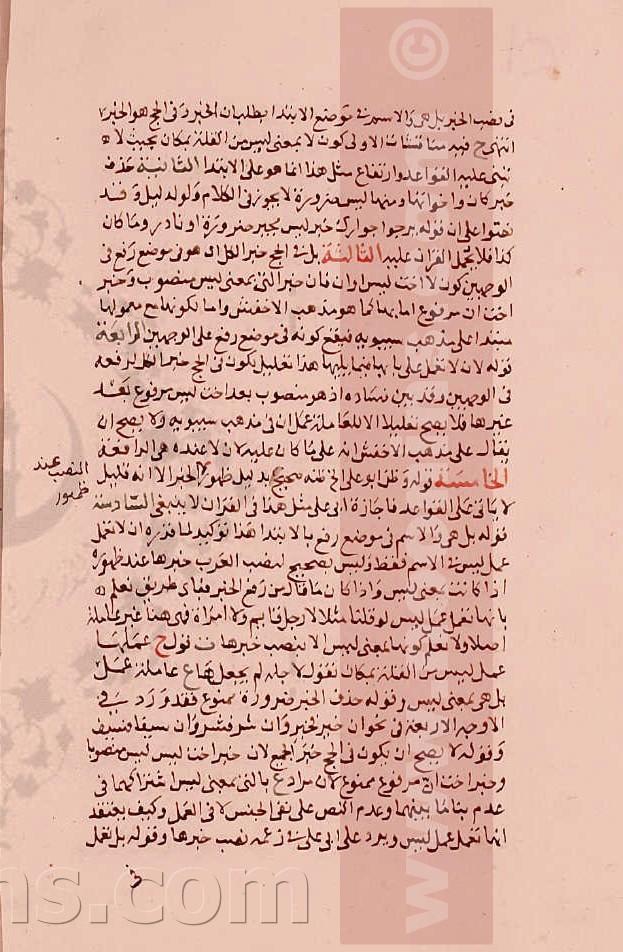 في نصب الخبر بل هي والاسم في موضع الابتدا يطلبان الخبر وفي الحج هو الخبر
انتهى ح فيه مناقشات الاولى كون لا بمعنى ليس من القلة بمكان بحيث لا
تبنى عليه القواعد وارتفاع مثل هذا انما هو على الابتدا الثانية حذف
خبر كان واخواتها ومنها ليس ضرورة لا يجوز في الكلام ولو لدليل وقد
نصوا على ان قوله يرجوا جوارك حين ليس مجير ضرورة او نادر وما كان
كذا فلا يحمل القران عليه الثالثة بل في الحج خبر الكل اي هو في موضع رفع في
الوجهين كون لا اخت ليس او ان فان خبر التي بمعنى ليس منصوب وخبر
اخت ان مرفوع اما بها كما هو مذهب الاخفش واما لكونها مع معمولها
مبتدا على مذهب سيبويه فيقع كونه في موضع رفع على الوجهين الرابعة
قوله لان لا تعمل على بابها فيما يليها هذا تعليل لكون في الحج خبر الكل لرفعه
في الوجهين وقد بين فساده اذ هو منصوب بعد اخت ليس مرفوع بعد
غيرها فلا يصح تعليلا الا للعاملة عمل ان في مذهب سيبويه ولا يصح ان
يقال على مذهب الاخفش انه على ما كان عليه لان لا عنده هي الرافعة
الخامسة قوله وظن ابو على الخ ظنه صحيح بدليل ظهور الخبر الا انه قليل
النصب عند
ظهور
لا يبنى على القواعد فاجازة ابي علي مثل هذا في القران لا ينبغي السادسة
قوله بل هي والاسم في موضع رفع بالابتدا هذا توكيد لما قرره ان لا تعمل
عمل ليس في الاسم فقط وليس بصحيح لنصب العرب خبرها عند ظهوره
اذا كانت بمعنى ليس واذا كان ما قال من رفع الخبر فباي طريق يعلم
بانها تعمل عمل ليس لو قلنا مثلا لا رجل قايم ولا امراة فهي هنا غير عاملة
اصلا ولا يعلم كونها بمعنى ليس الا بنصب خبرها قول ح عملها
عمل ليس من القلة بمكان نقول لا جا لم يجعلها ع عاملة عمل
بل هي بمعنى ليس وقوله حذف الخبر ضرورة ممنوع فقد ورد في
الاوجه الاربعة في نحو ان خير فخير وان شر فشر وان سيفا فسيف
وقوله لا يصح ان يكون في الحج خبر الجميع لان خبر اخت ليس ليس منصوبا
وخبر اخت ان مرفوع ممنوع لان مراد ع بالتي بمعنى ليس اشتراكهما في
عدم بنا ما بينهما وعدم النص على نفي الجنس لا في العمل وكيف يعتقد
انها تعمل عمل ليس ويرد على ابي علي في زعمه نصب خبرها وقوله بل تعمل